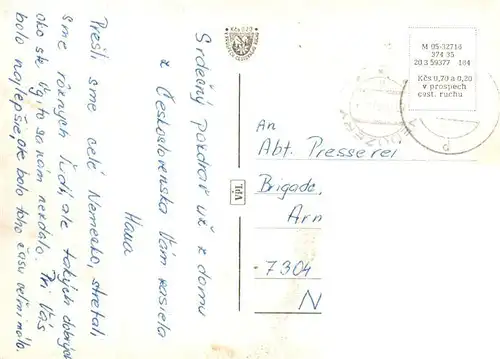 Srdečný pozdrav už z domu
z Československa Vám zasiela
Hana
Prešli sme celé Nemecko, stretali
sme rôznych ľudí, ale takých dobrých
ako ste Vy, to sa nám nezdalo. Pri Vás
bolo najlepšie, ale bolo toho času veľmi málo.
M 05-32716
374 35
20 3 59377 484
Kčs 0,70 a 0,20
v prospech
cest. ruchu
An
Abt. Presserei
Brigade,
Arn
-7304
N